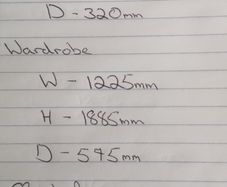 D - 320mm
Wardrobe
W - 1225mm
H - 1885mm
D - 545mm